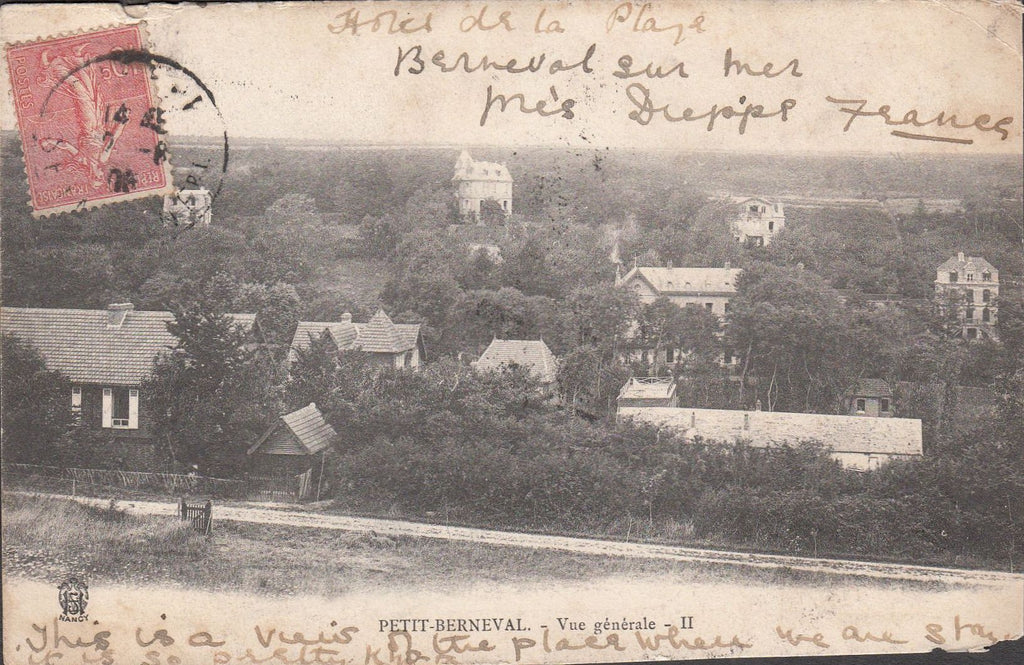 Hotel de la Plage
Berneval sur mer
près Dieppe France
10c
POSTES
REPUBLIQUE FRANÇAISE
14
NANCY
PETIT-BERNEVAL. - Vue générale - II
This is a view of the place where we are stay
it is so pretty